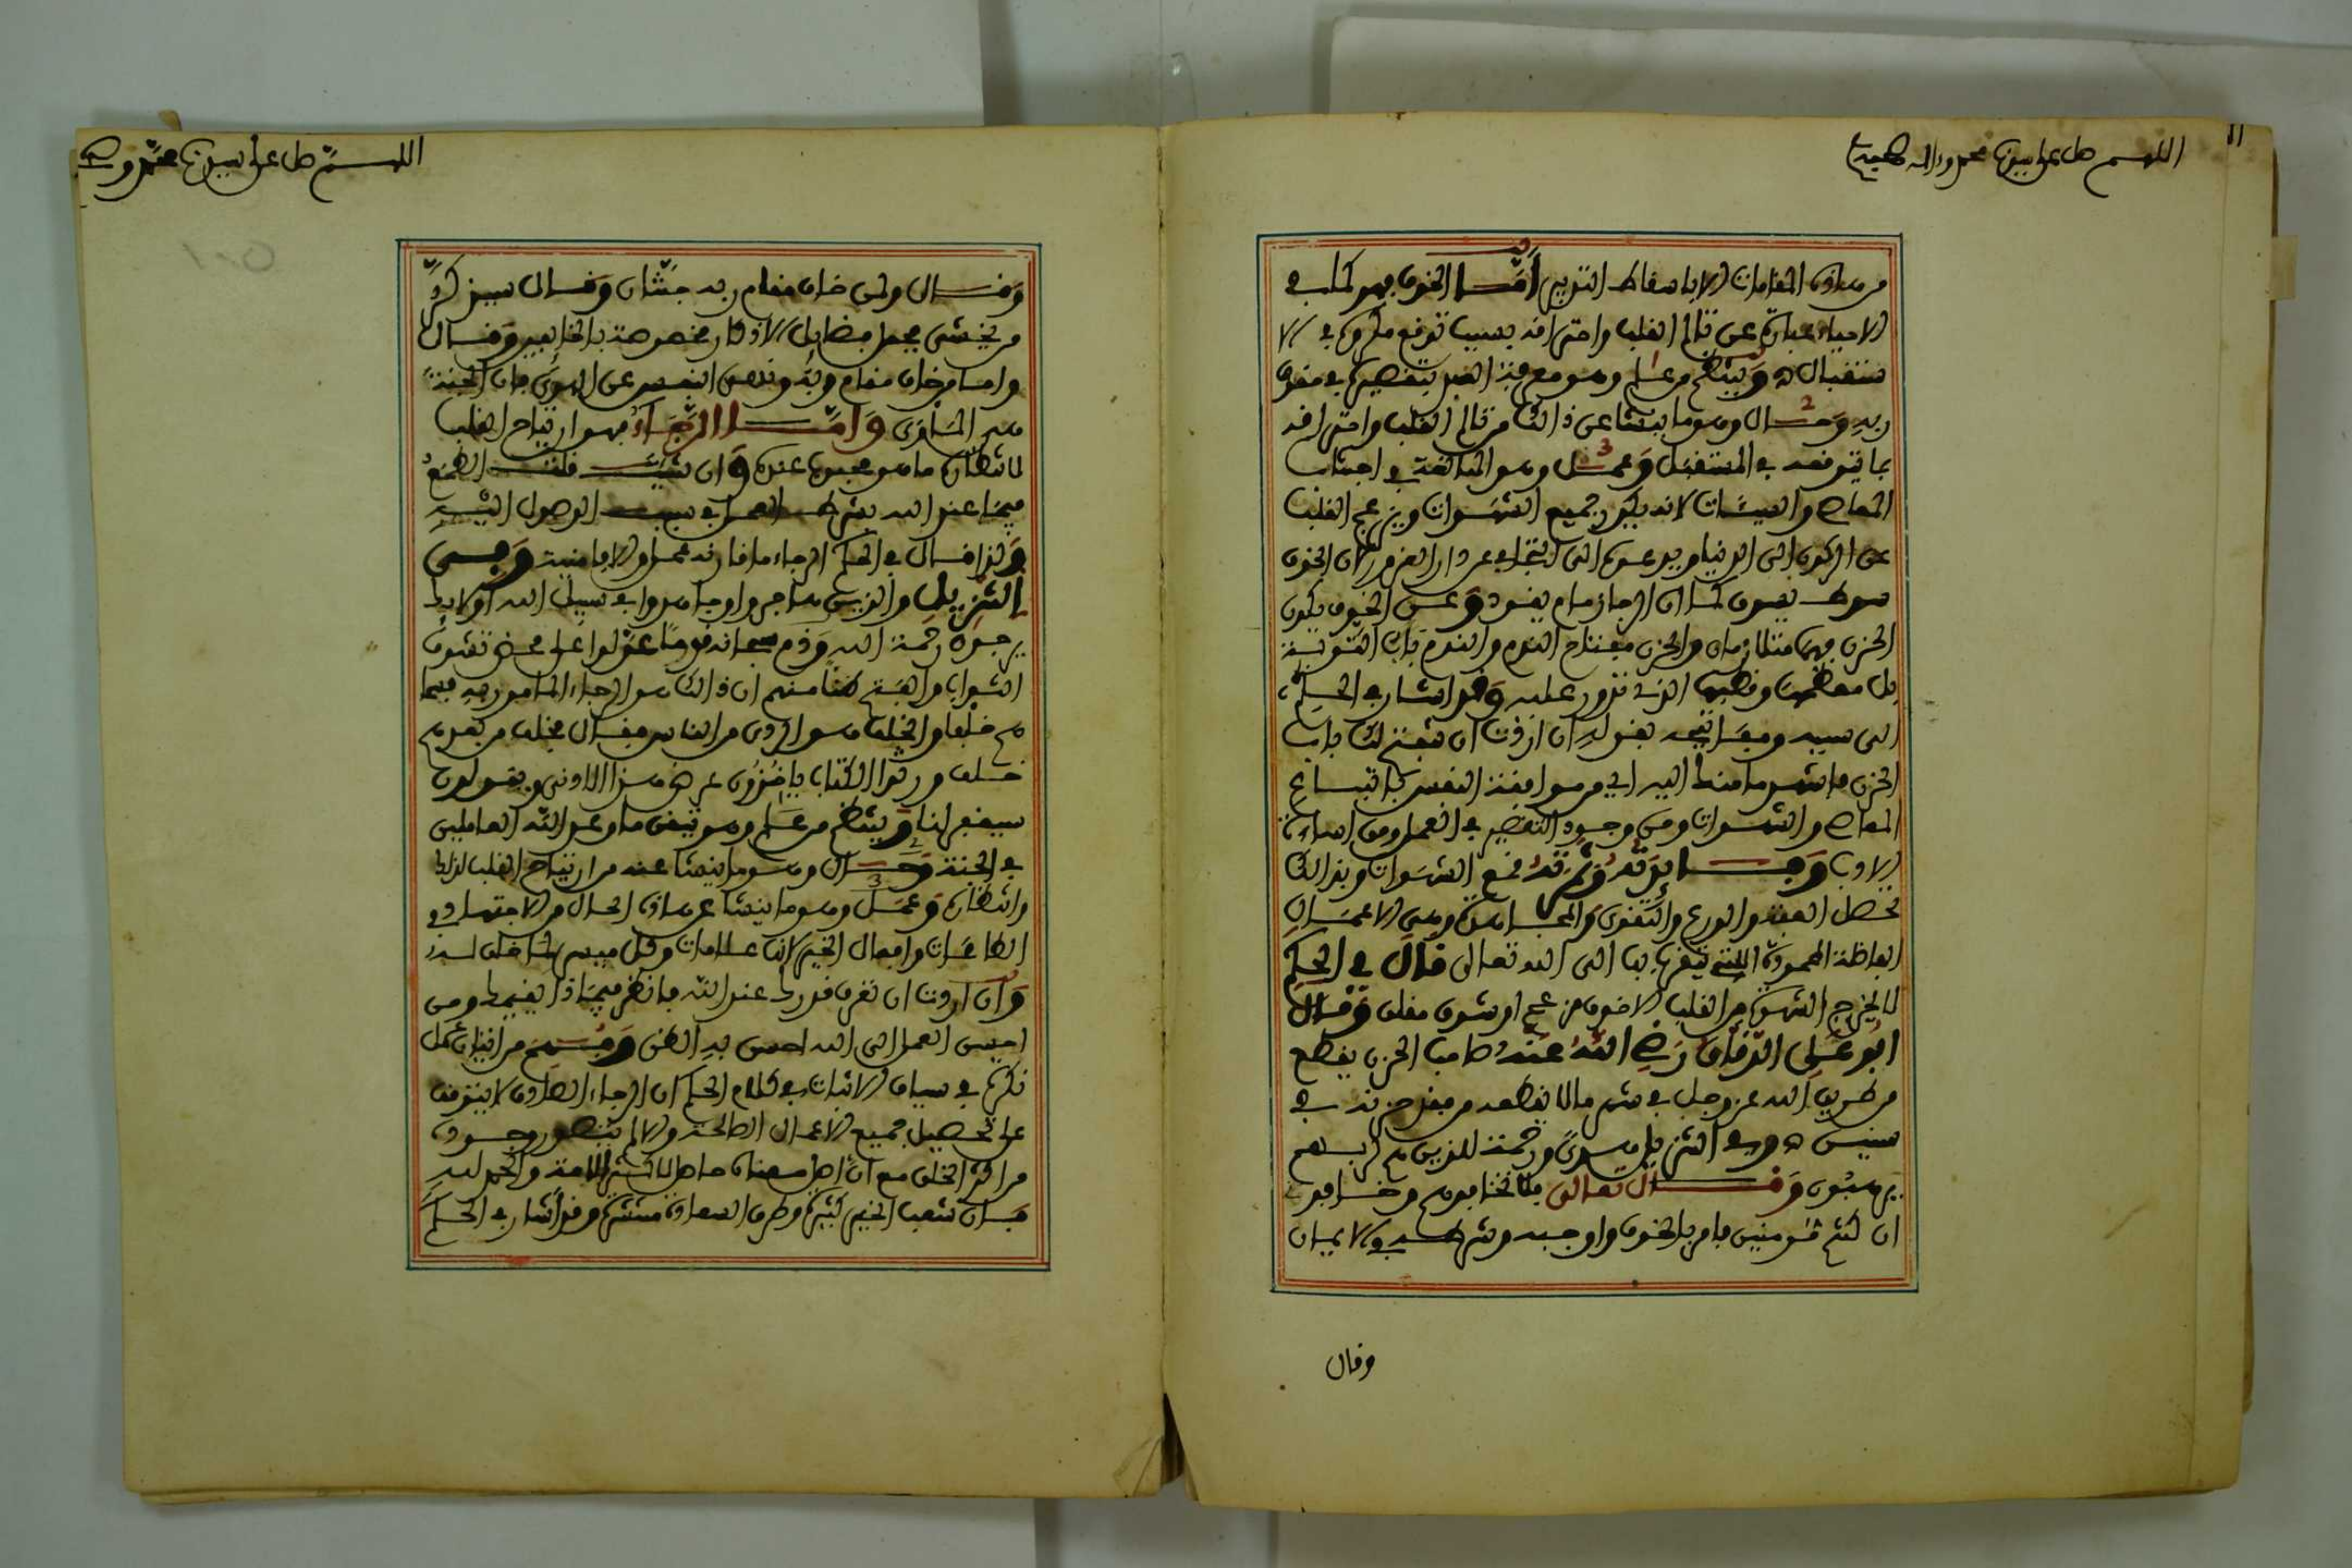 اللهم صل على سيدنا محمد واله وصحبه
11
من هذه المقامات الا باسقاط التدبير اما الخوف فهو كما في
الاحياء عبارة عن تالم القلب واحتراقه بسبب توقع مكروه في الا
ستقبال ه وينتظم من علم وهو معرفة العبد بتقصيره في حقوق
ربه وحال وهو ما ينشا عن ذالك من تالم القلب واحتراقه
بما يتوقعه في المستقبل وعمل وهو المبالغة في اجتناب
المعاصي والسيئات لانه يكدر جميع الشهوات ويزعج القلب
عن الركون الى الدنيا ويدعوه الى التجافي عن دار الغرور لان الخوف
سوط يسوق كما ان الرجا زمام يقود وعن الخوف يكون
الحزن فهما متلازمان والحزن مفتاح الندم والندم باب التوبة
بل معظمها وقطبها الذي تدور عليه وقد اشار في الحكم
الى سببه ومفاتيحه بقوله ان اردت ان يفتح لك باب
الحزن فانشهد ما منك اليه اي من موافقة النفس باتباع
المعاصي والشهوات ومن وجود التقصير في العمل ومن اساءة
الادب وفايدته وثمرته قمع الشهوات وبذالك
تحصل العفة والورع والتقوى والمجاهدة وهي الاعمال
الفاضلة المحمودة التي يتقرب بها الى الله تعالى قال في الحكم
لا يخرج الشهوة من القلب الا خوف مزعج او شوق مقلق وقال
ابو علي الدقاق رضي الله عنه صاحب الحزن يقطع
من طريق الله عز وجل في شهر ما لا يقطعه من فقد حزنه في
سنين ه وفي التنزيل هدى ورحمة للذين هم لربهم
يرهبون وقال تعالى فلا تخافوهم وخافون
ان كنتم مومنين فامر بالخوف واوجبه وشرطه في الايمان
وقال
اللهم صل على سيدنا محمد وصحبه
وقال ولمن خاف مقام ربه جنتان وقال سيذكر
من يخشى فجعل فضايل الاذكار مخصوصة بالخايفين وقال
واما من خاف مقام ربه ونهى النفس عن الهوى فان الجنة
هي الماوى واما الرجاء فهو ارتياح القلب
لانتظار ما هو محبوب عنده وان شئت قلت الطمع
فيما عند الله بشرط العمل في سبب الوصول اليه
ولذا قال في الحكم الرجاء ما قارنه عمل والا فامنية وفي
التنزيل والذين هاجروا وجاهدوا في سبيل الله اولايك
يرجون رحمة الله وذم سبحانه قوما عولوا على محض تمنيهم
الثواب والهبة ظنا منهم ان ذالك هو الرجاء المامور به فيما
هم خلف والخلف هو الردي من الناس فقال فخلف من بعدهم
خلف ورثوا الكتاب ياخذون عرض هذا الادنى ويقولون
سيغفر لنا وينتظم من علم وهو تيقن ما وعد الله العاملين
في الجنة وحال وهو ما ينشا عنه من ارتياح القلب لذلك
وانتظاره وعمل وهو ما ينشا عن هذه الحال من الاجتهاد في
الطاعات وافعال الخير لانها علامات وكل ميسر لما خلق له
وان اردت ان تعرف قدرك عند الله فانظر فيماذا يقيمك ومن
احسن العمل الى الله احسن به الظن وفهم من اتيان كل
نكرة في سياق الاثبات في كلام الحكم ان الرجاء الصادق لا يتوقف
على تحصيل جميع الاعمال الصالحة والا لم يتصور وجوده
من اكثر الخلق مع ان اصل معناه حاصل لاكثر الامة والحمد لله
فان شعب الخير كثيرة وطرق السعادة منتشرة وقد اشار في الحكم